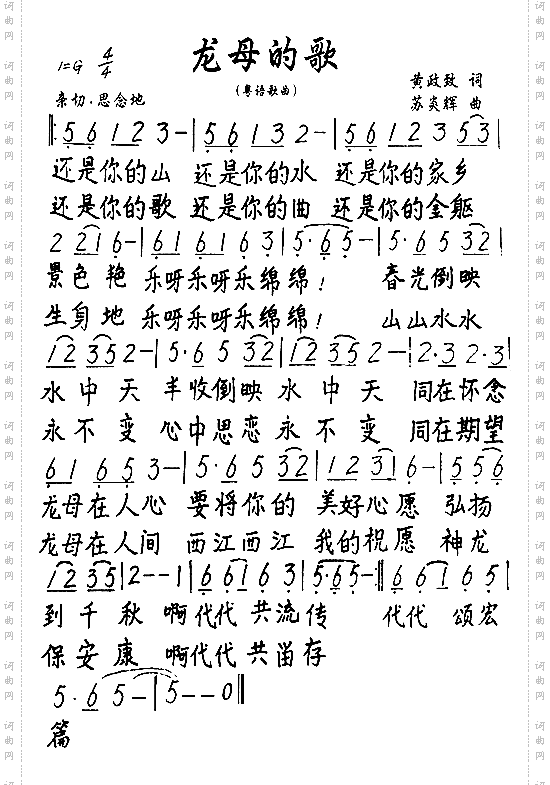 龙母的歌
(粤语歌曲)
1=G 4/4
黄政致 词
亲切·思念地
苏炎辉 曲
‖:5 6 1 2 3 - | 5 6 1 3 2 - | 5 6 1 2 3 5 3 |
还是你的山 还是你的水 还是你的家乡
还是你的歌 还是你的曲 还是你的金躯
2 2 1 6 - | 6 1 6 1 6 3 | 5·6 5 - | 5·6 5 3 2 |
景色艳 乐呀乐呀乐绵绵! 春光倒映
生身地 乐呀乐呀乐绵绵! 山山水水
1 2 3 5 2 - | 5·6 5 3 2 | 1 2 3 5 2 - | 2·3 2·3 |
水中天 丰收倒映水中天 同在怀念
永不变 心中思恋永不变 同在期望
6 1 6 5 3 - | 5·6 5 3 2 | 1 2 3 1 6 - | 5 5 6 |
龙母在人心 要将你的 美好心愿 弘扬
龙母在人间 西江西江 我的祝愿 神龙
1 2 3 5 | 2 - - 1 | 6 6 1 6 3 | 5·6 5 - :‖ 6 6 1 6 5 |
到千秋 啊代代共流传 代代颂宏
保安康 啊代代共留存
5·6 5 - | 5 - - 0 ‖
篇
词曲网